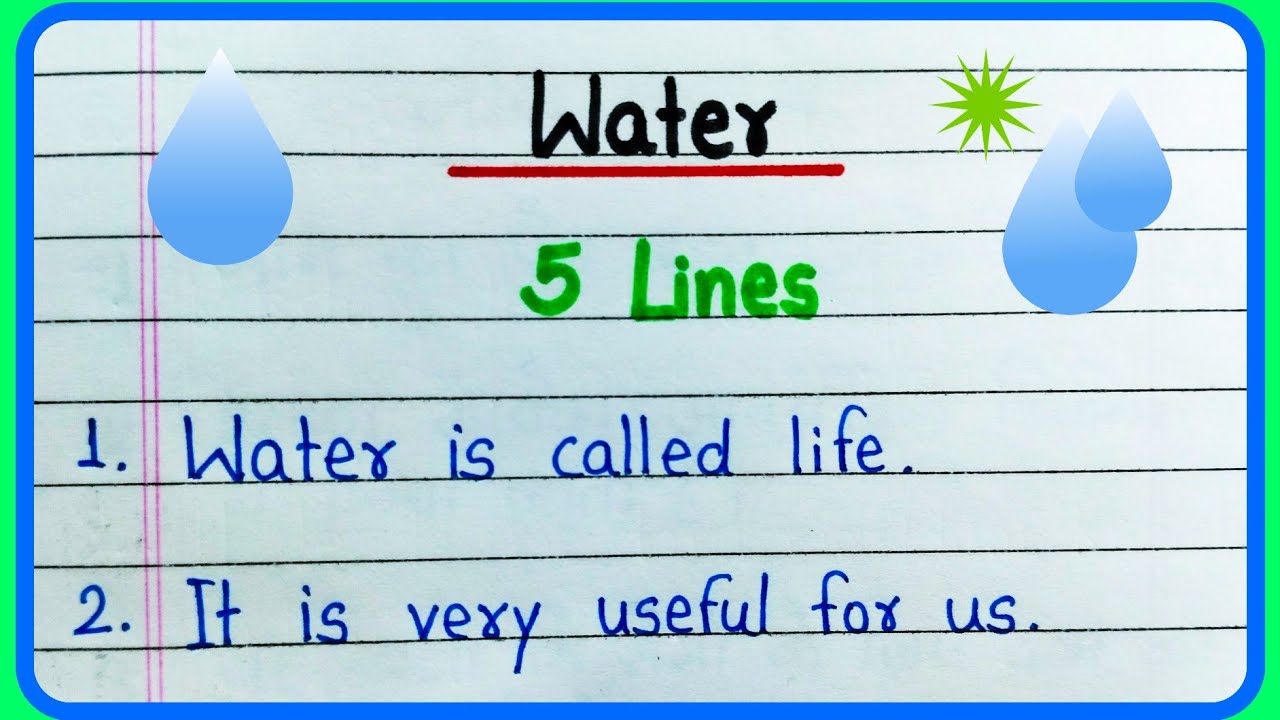 Water
5 Lines
1. Water is called life.
2. It is very useful for us.